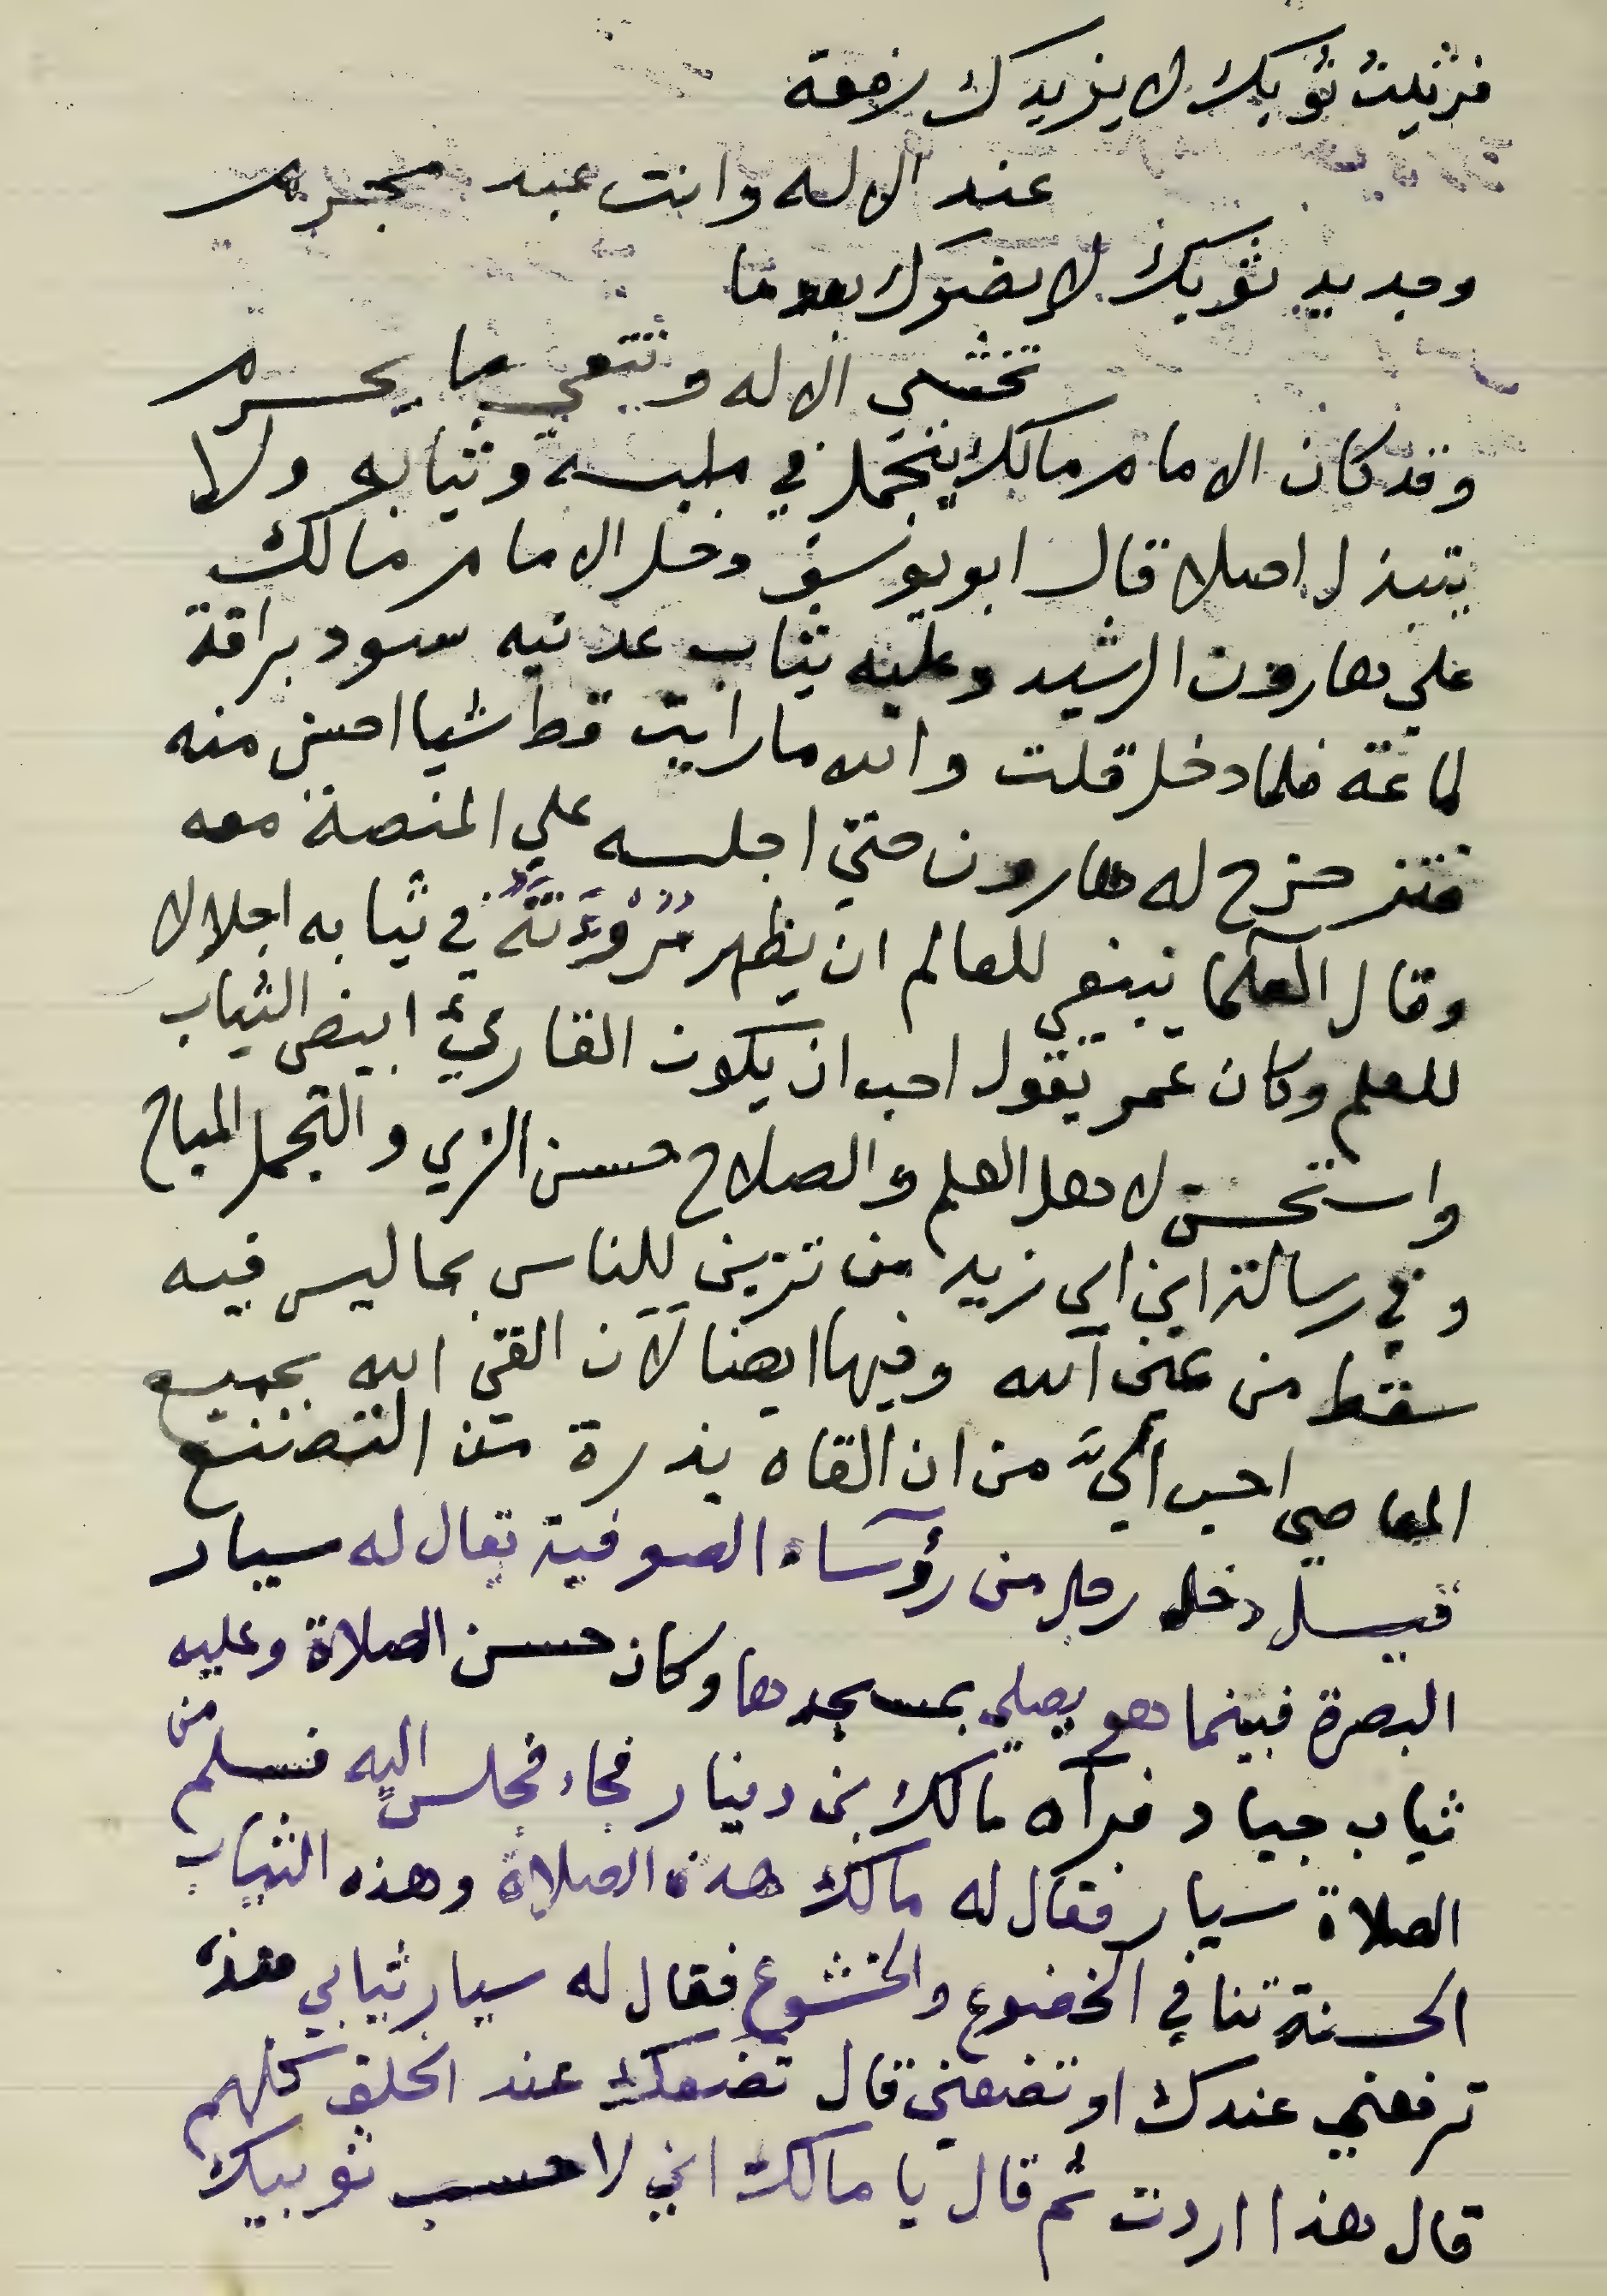 فرثيث ثوبك لا يزيدك رفعة
عند الاله وانت عبد مجرم
وجديد ثوبك لا يضرك بعدما
تخشى الاله وتتقي ما يحرم
وقد كان الامام مالك يتجمل في ملبسه وثيابه ولا
يتبذل اصلا قال ابو يوسف دخل الامام مالك
علي هارون الرشيد وعليه ثياب عدنيه سود براقة
لماعة فلما دخل قلت والله ما رايت قط شيا احسن منه
فتزحزح له هارون حتي اجلسه علي المنصة معه
وقال العلما ينبغي للعالم ان يظهر مُرُوْءَتَهُ في ثيابه اجلالا
للعلم وكان عمر يقول احب ان يكون القارئ ابيض الثياب
واستحسن لاهل العلم والصلاح حسن الزي والتجمل المباح
وفي رسالة ابن ابي زيد من تزين للناس بما ليس فيه
سقط من عين الله وفيها ايضا لآن القى الله بجميع
المعاصي احب اليَّ من ان القاه بذرة من التصنع
قيل دخل رجل من رؤساء الصوفية يقال له سيار
البصرة فبينما هو يصلي بمسجدها وكان حسن الصلاة وعليه
ثياب جياد فرآه مالك بن دينار فجاء فجلس اليه فسلم من
الصلاة سيار فقال له مالك هذه الصلاة وهذه الثياب
الحسنة تنافي الخضوع والخشوع فقال له سيار ثيابي هذه
ترفعني عندك او تضعني قال تضعك عند الخلق كلهم
قال هذا اردت ثم قال يا مالك اني لاحسب ثوبيك